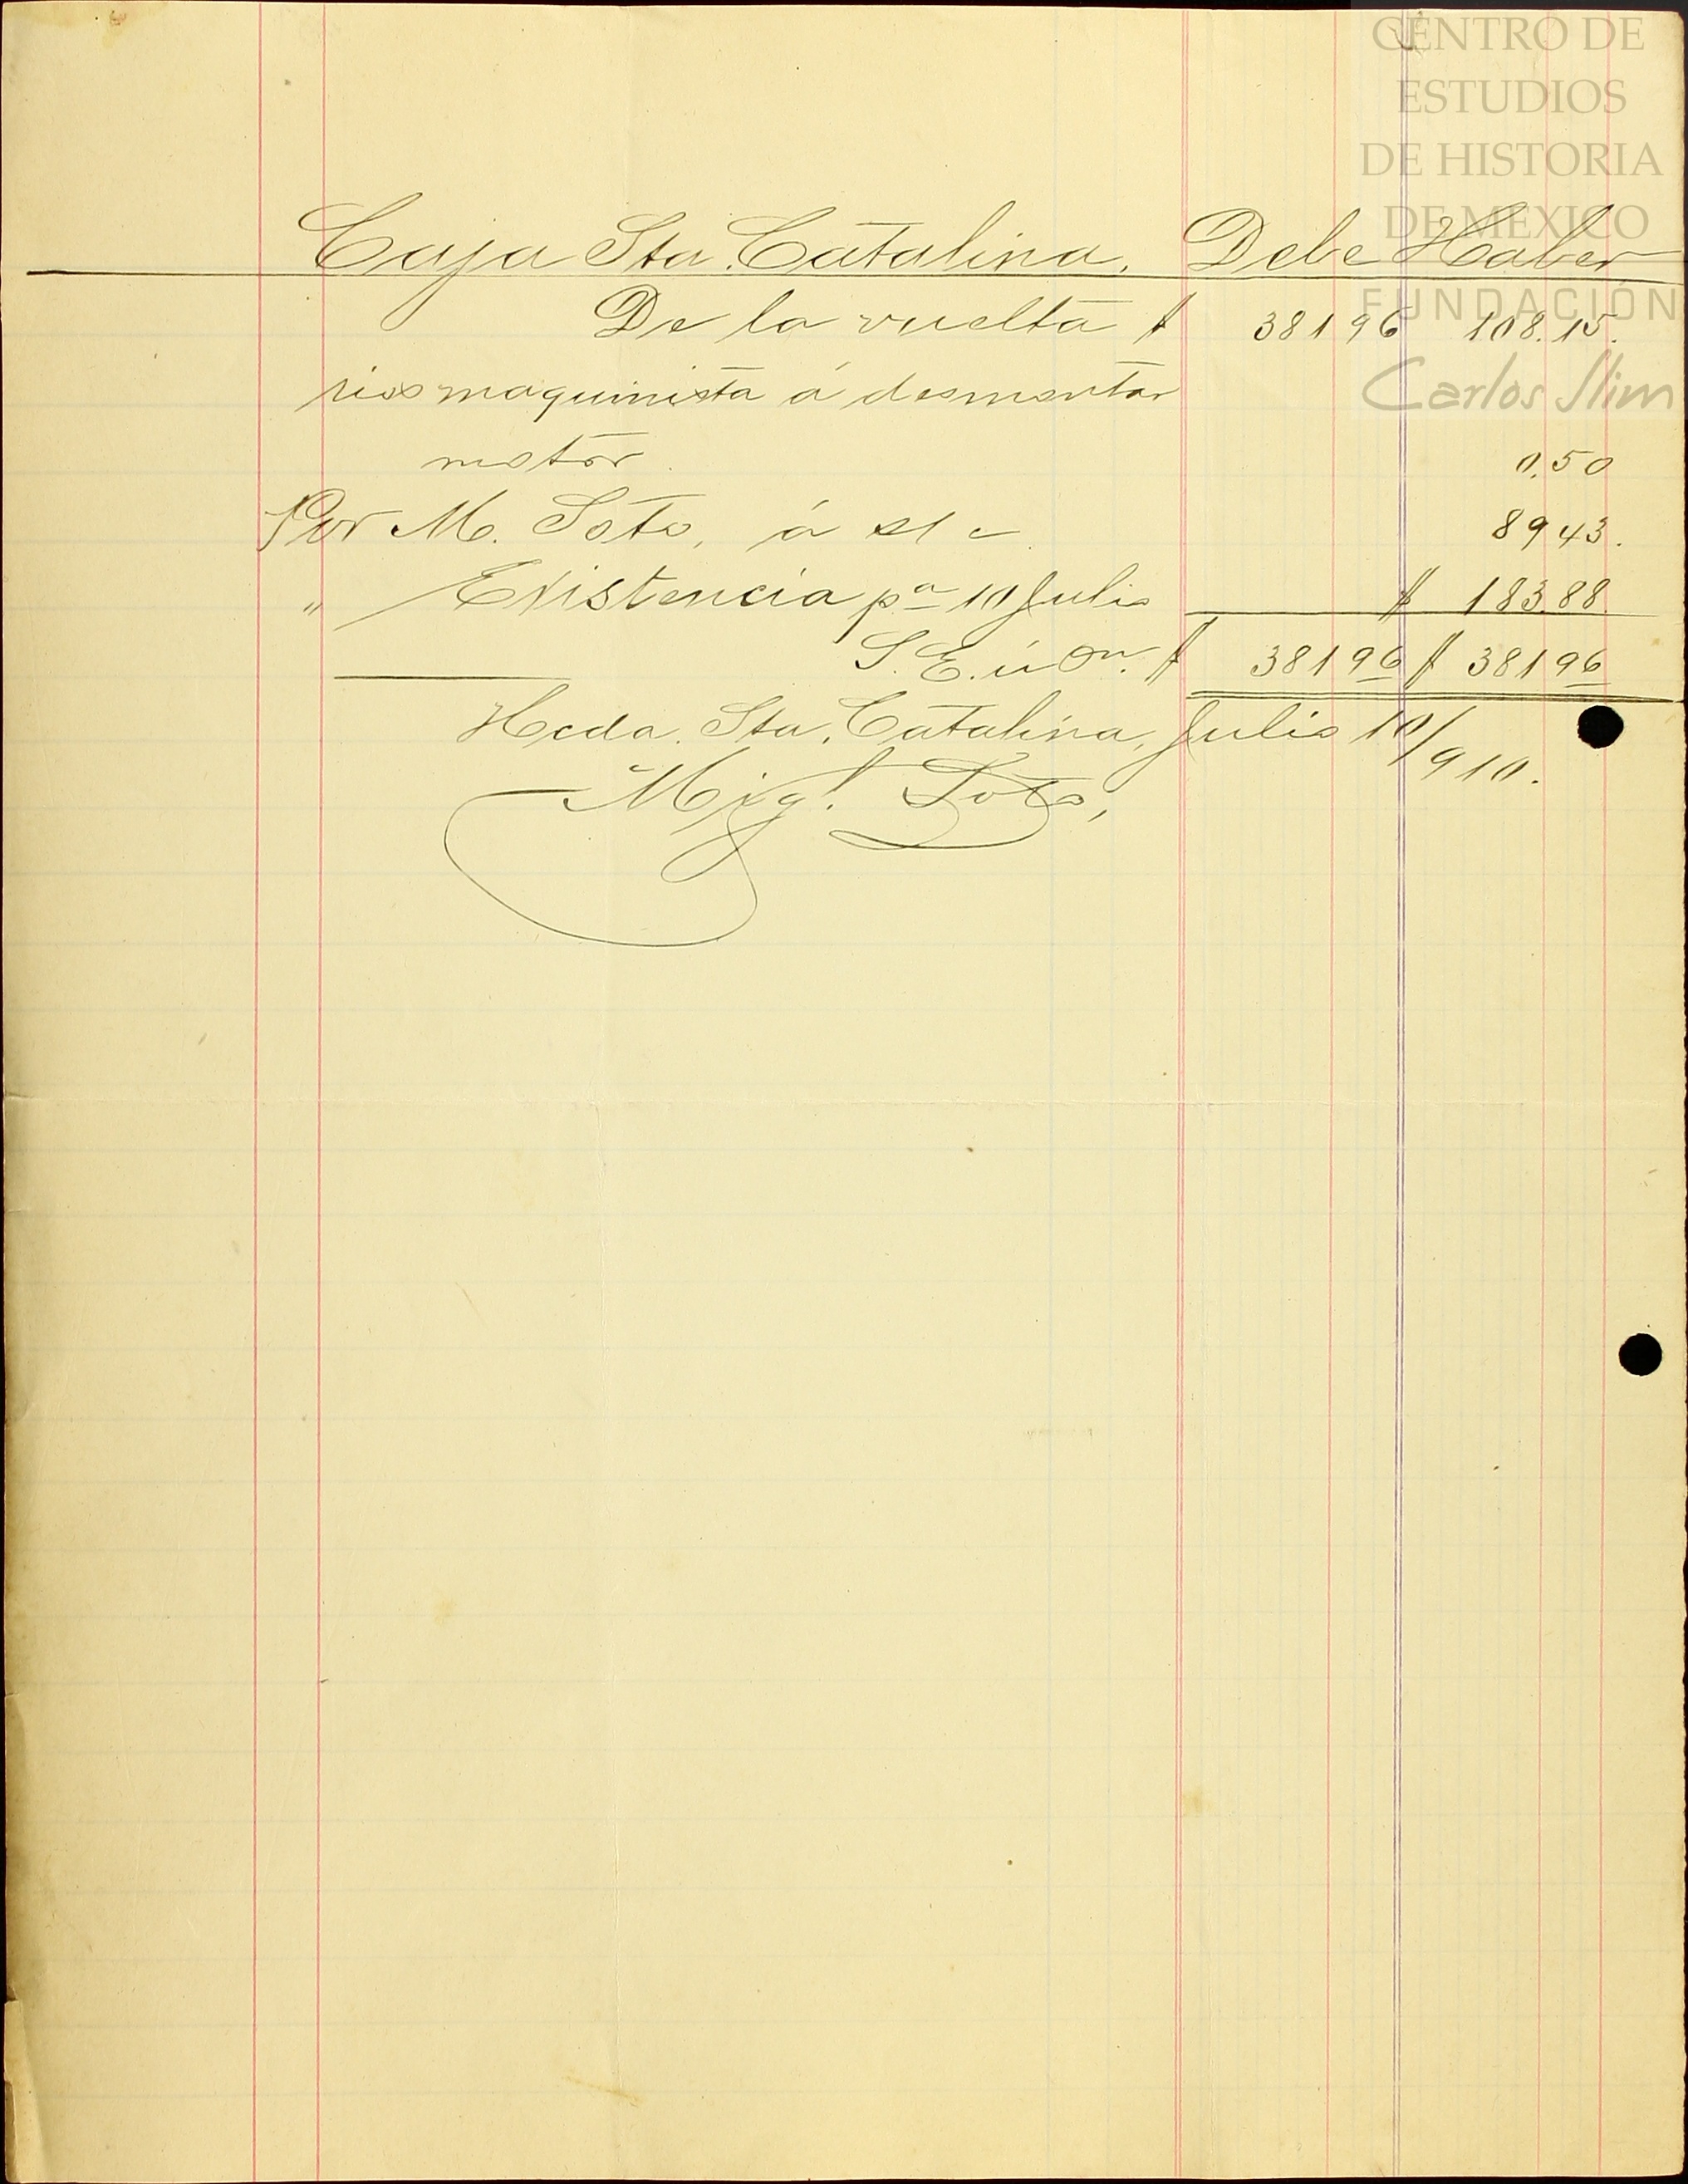 CENTRO DE
ESTUDIOS
DE HISTORIA
DE MEXICO
FUNDACIÓN
Carlos Slim
Caja Sta. Catalina. Debe Haber
De la vuelta $ 381 96 108.15.
rios maquinista á desmontar
motor. 0.50
Por M. Soto, á s/c 89 43.
" Existencia pª 10 Julio $ 183.88
S. E. ú On. $ 381 96 $ 381 96
Hcda. Sta. Catalina, Julio 10/910.
Migl. Soto,